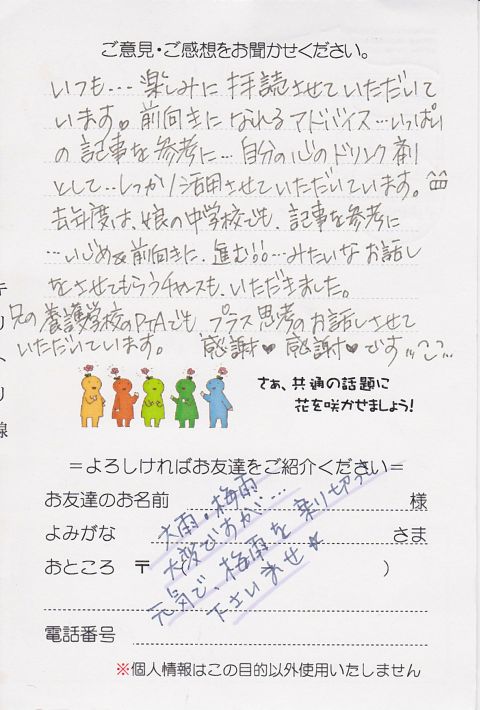 ご意見・ご感想をお聞かせください。
いつも…楽しみに拝読させていただいて
います。前向きになれるアドバイス…いっぱい
の記事を参考に…自分の心のドリンク剤
として…しっかり活用させていただいています。
去年度は、娘の中学校でも、記事を参考に
…いじめ&前向きに、進む!!…みたいなお話し
をさせてもらうチャンスも、いただきました。
兄の養護学校のPTAでもプラス思考のお話しさせて
いただいています。 感謝♥感謝♥です
キリトリ線
さぁ、共通の話題に
花を咲かせましょう!
=よろしければお友達をご紹介ください=
お友達のお名前 様
よみがな さま
おところ 〒( )
大雨・梅雨
大変ですが…
元気で、梅雨を乗り切って
下さいませ☆
電話番号
※個人情報はこの目的以外使用いたしません